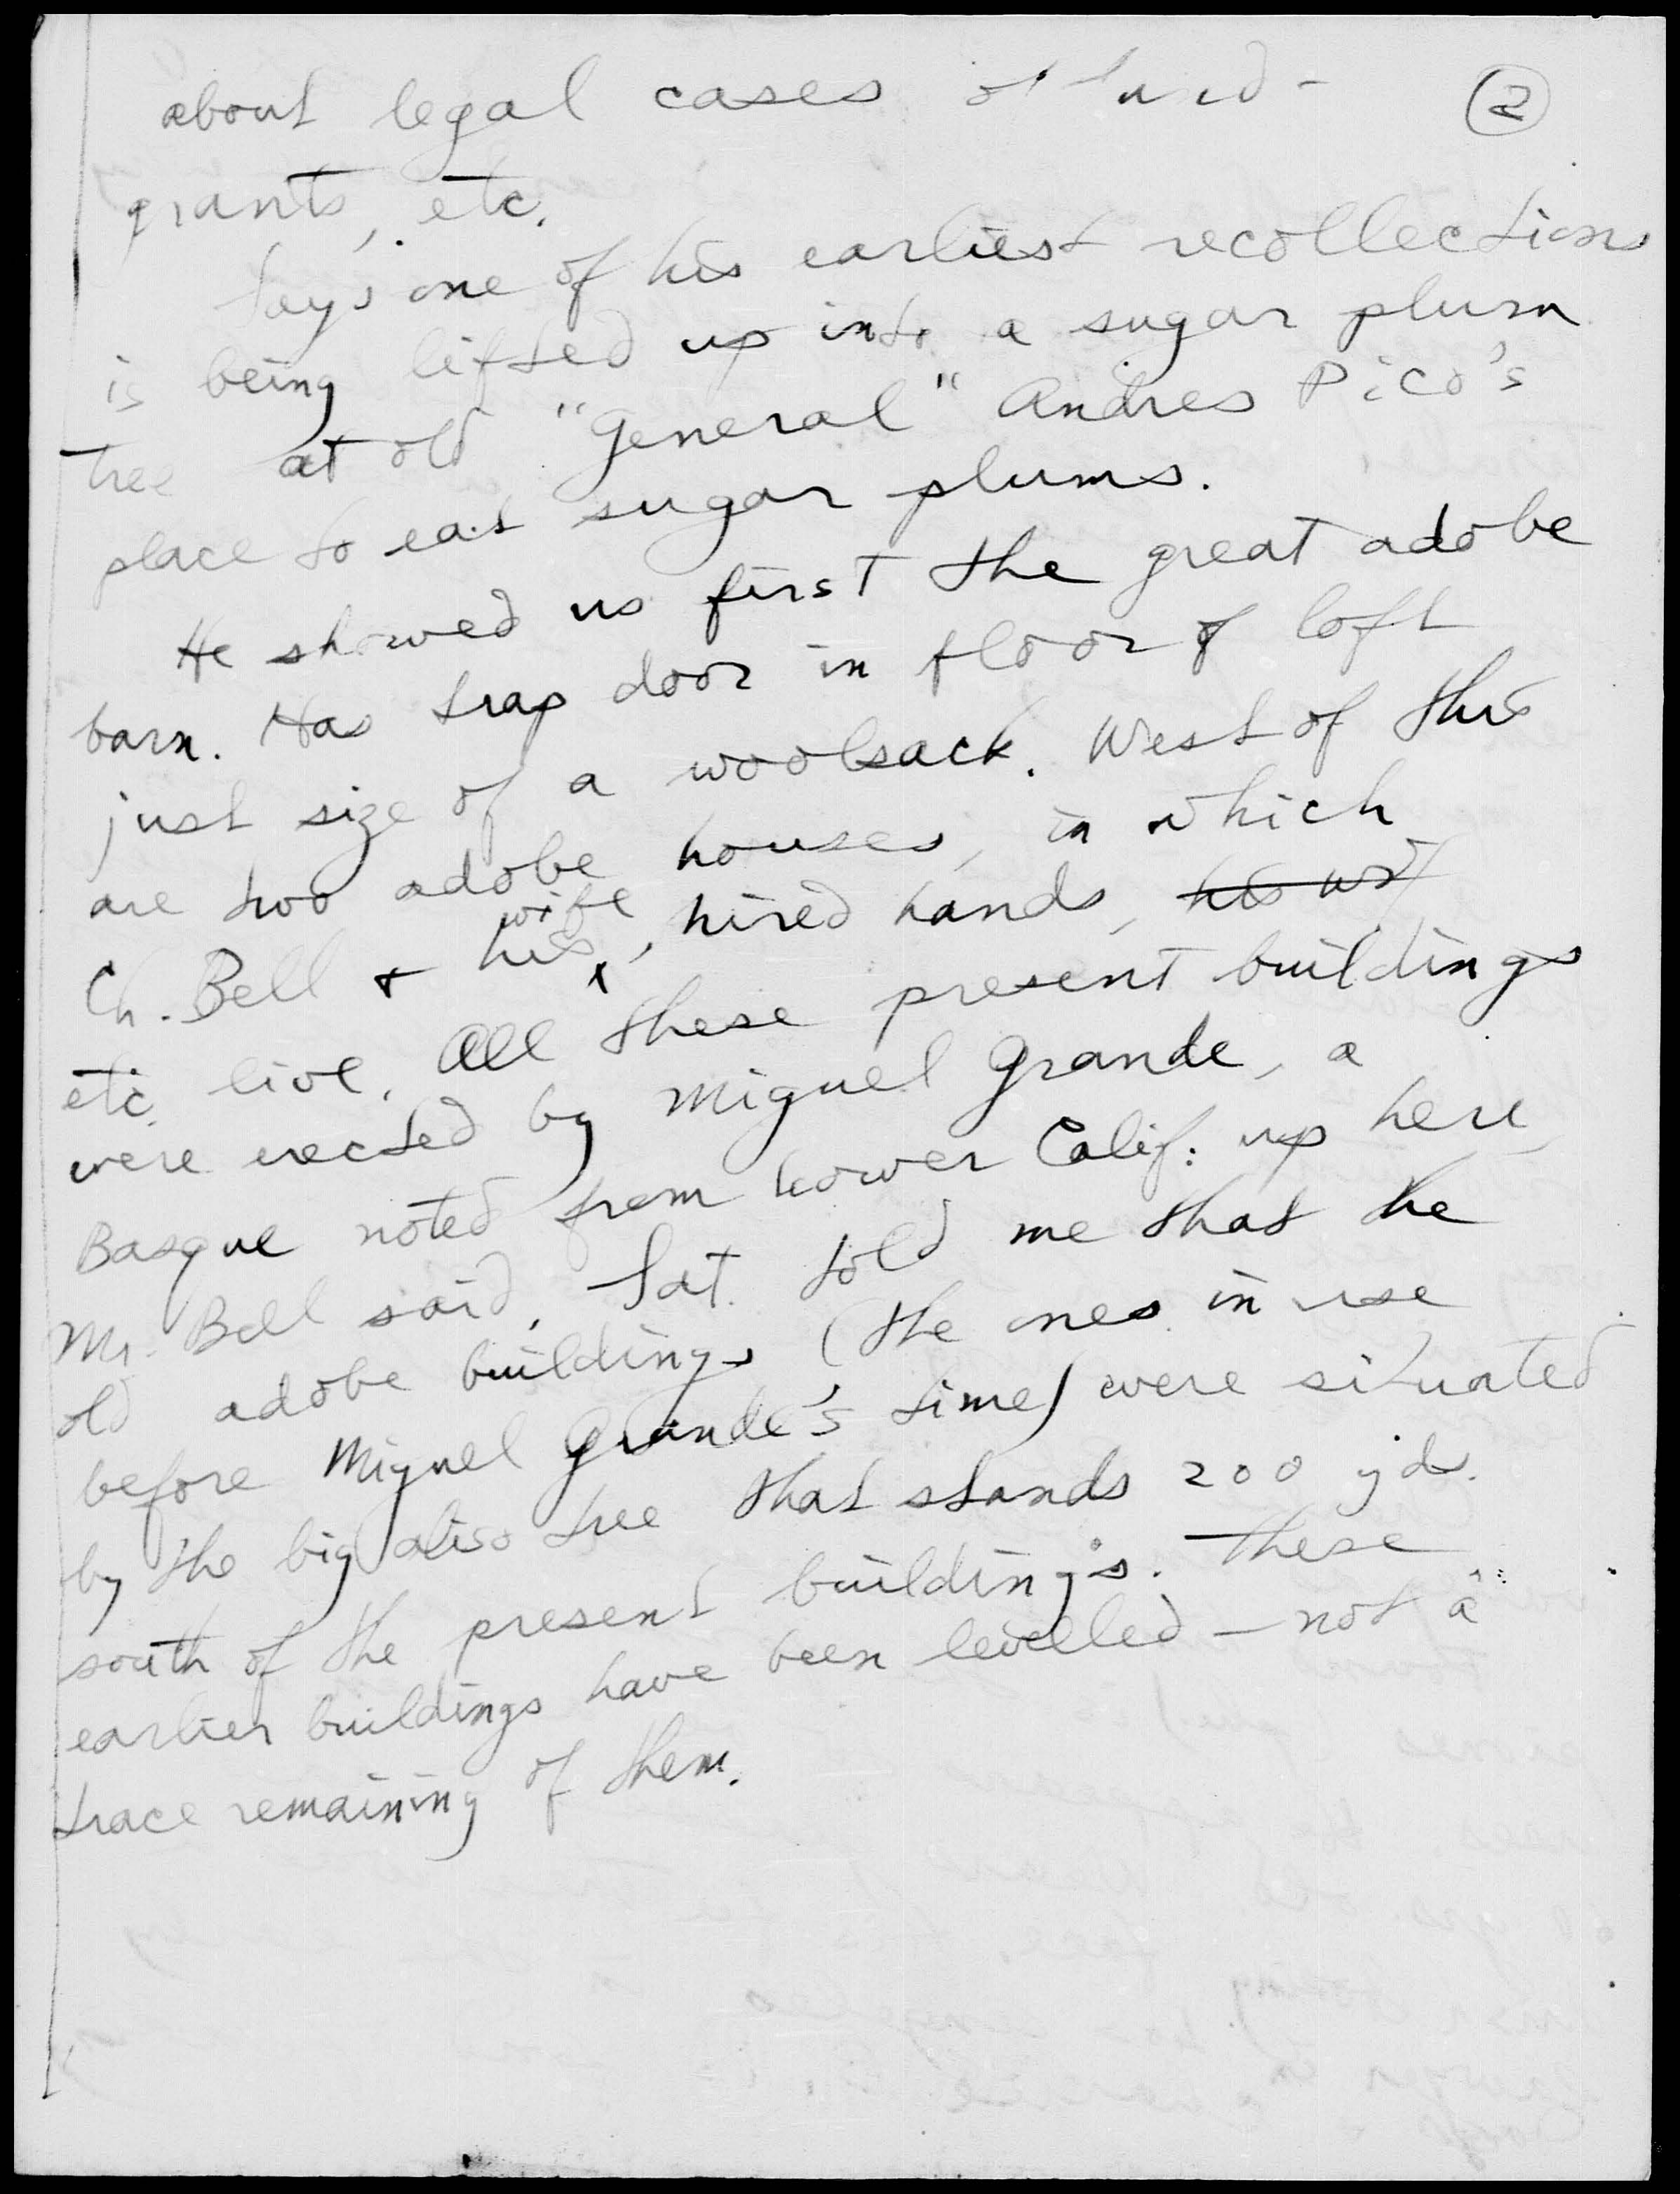 about legal cases of land- ②
grants, etc.
Says one of his earliest recollections
is being lifted up into a sugar plum
tree at old "General" Andres Pico's
place to eat sugar plums.
He showed us first the great adobe
barn. Has trap door in floor of loft
just size of a woolsack. West of this
are two adobe houses, in which
Ch. Bell + his wife, hired hands, his wif
etc. live. All these present buildings
were erected by Miguel Grande, a
Basque noted from Lower Calif. up here,
Mr. Bell said. Sat. told me that the
old adobe buildings (the ones in use
before Miguel Grande's time) were situated
by the big aliso tree that stands 200 yds.
south of the present buildings. These
earlier buildings have been levelled — not a
trace remaining of them.